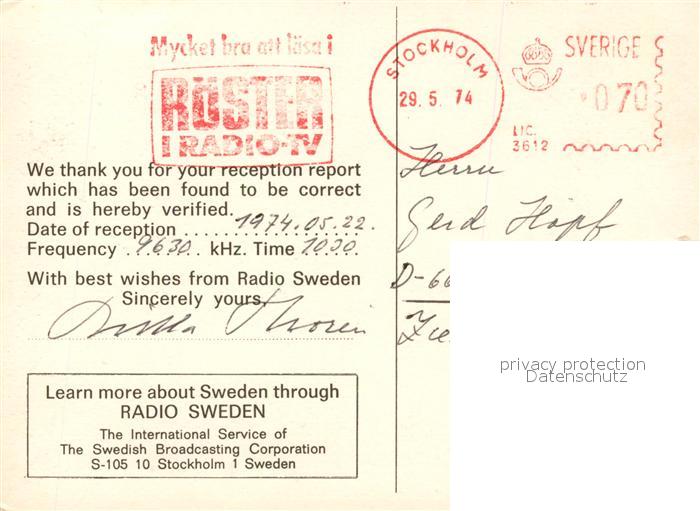 Mycket bra att läsa i
RÖSTER
I RADIO-TV
STOCKHOLM
29. 5. 74
SVERIGE
070
LIC.
3612
We thank you for your reception report
which has been found to be correct
and is hereby verified.
Date of reception 1974.05.22.
Frequency 9630 kHz. Time 1030
With best wishes from Radio Sweden
Sincerely yours,
Learn more about Sweden through
RADIO SWEDEN
The International Service of
The Swedish Broadcasting Corporation
S-105 10 Stockholm 1 Sweden
Herrn
Gerd Höpf
D-66
privacy protection
Datenschutz